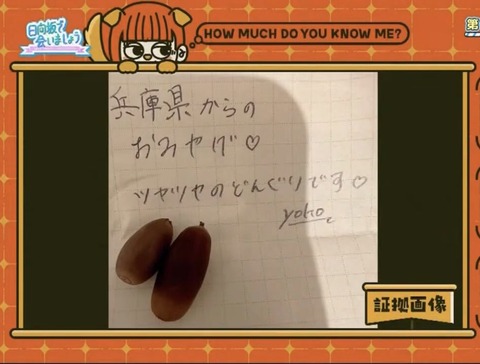 日向坂で
会いましょう
HOW MUCH DO YOU KNOW ME?
第
兵庫県からの
おみやげ♡
ツヤツヤのどんぐりです♡
yoko
証拠画像